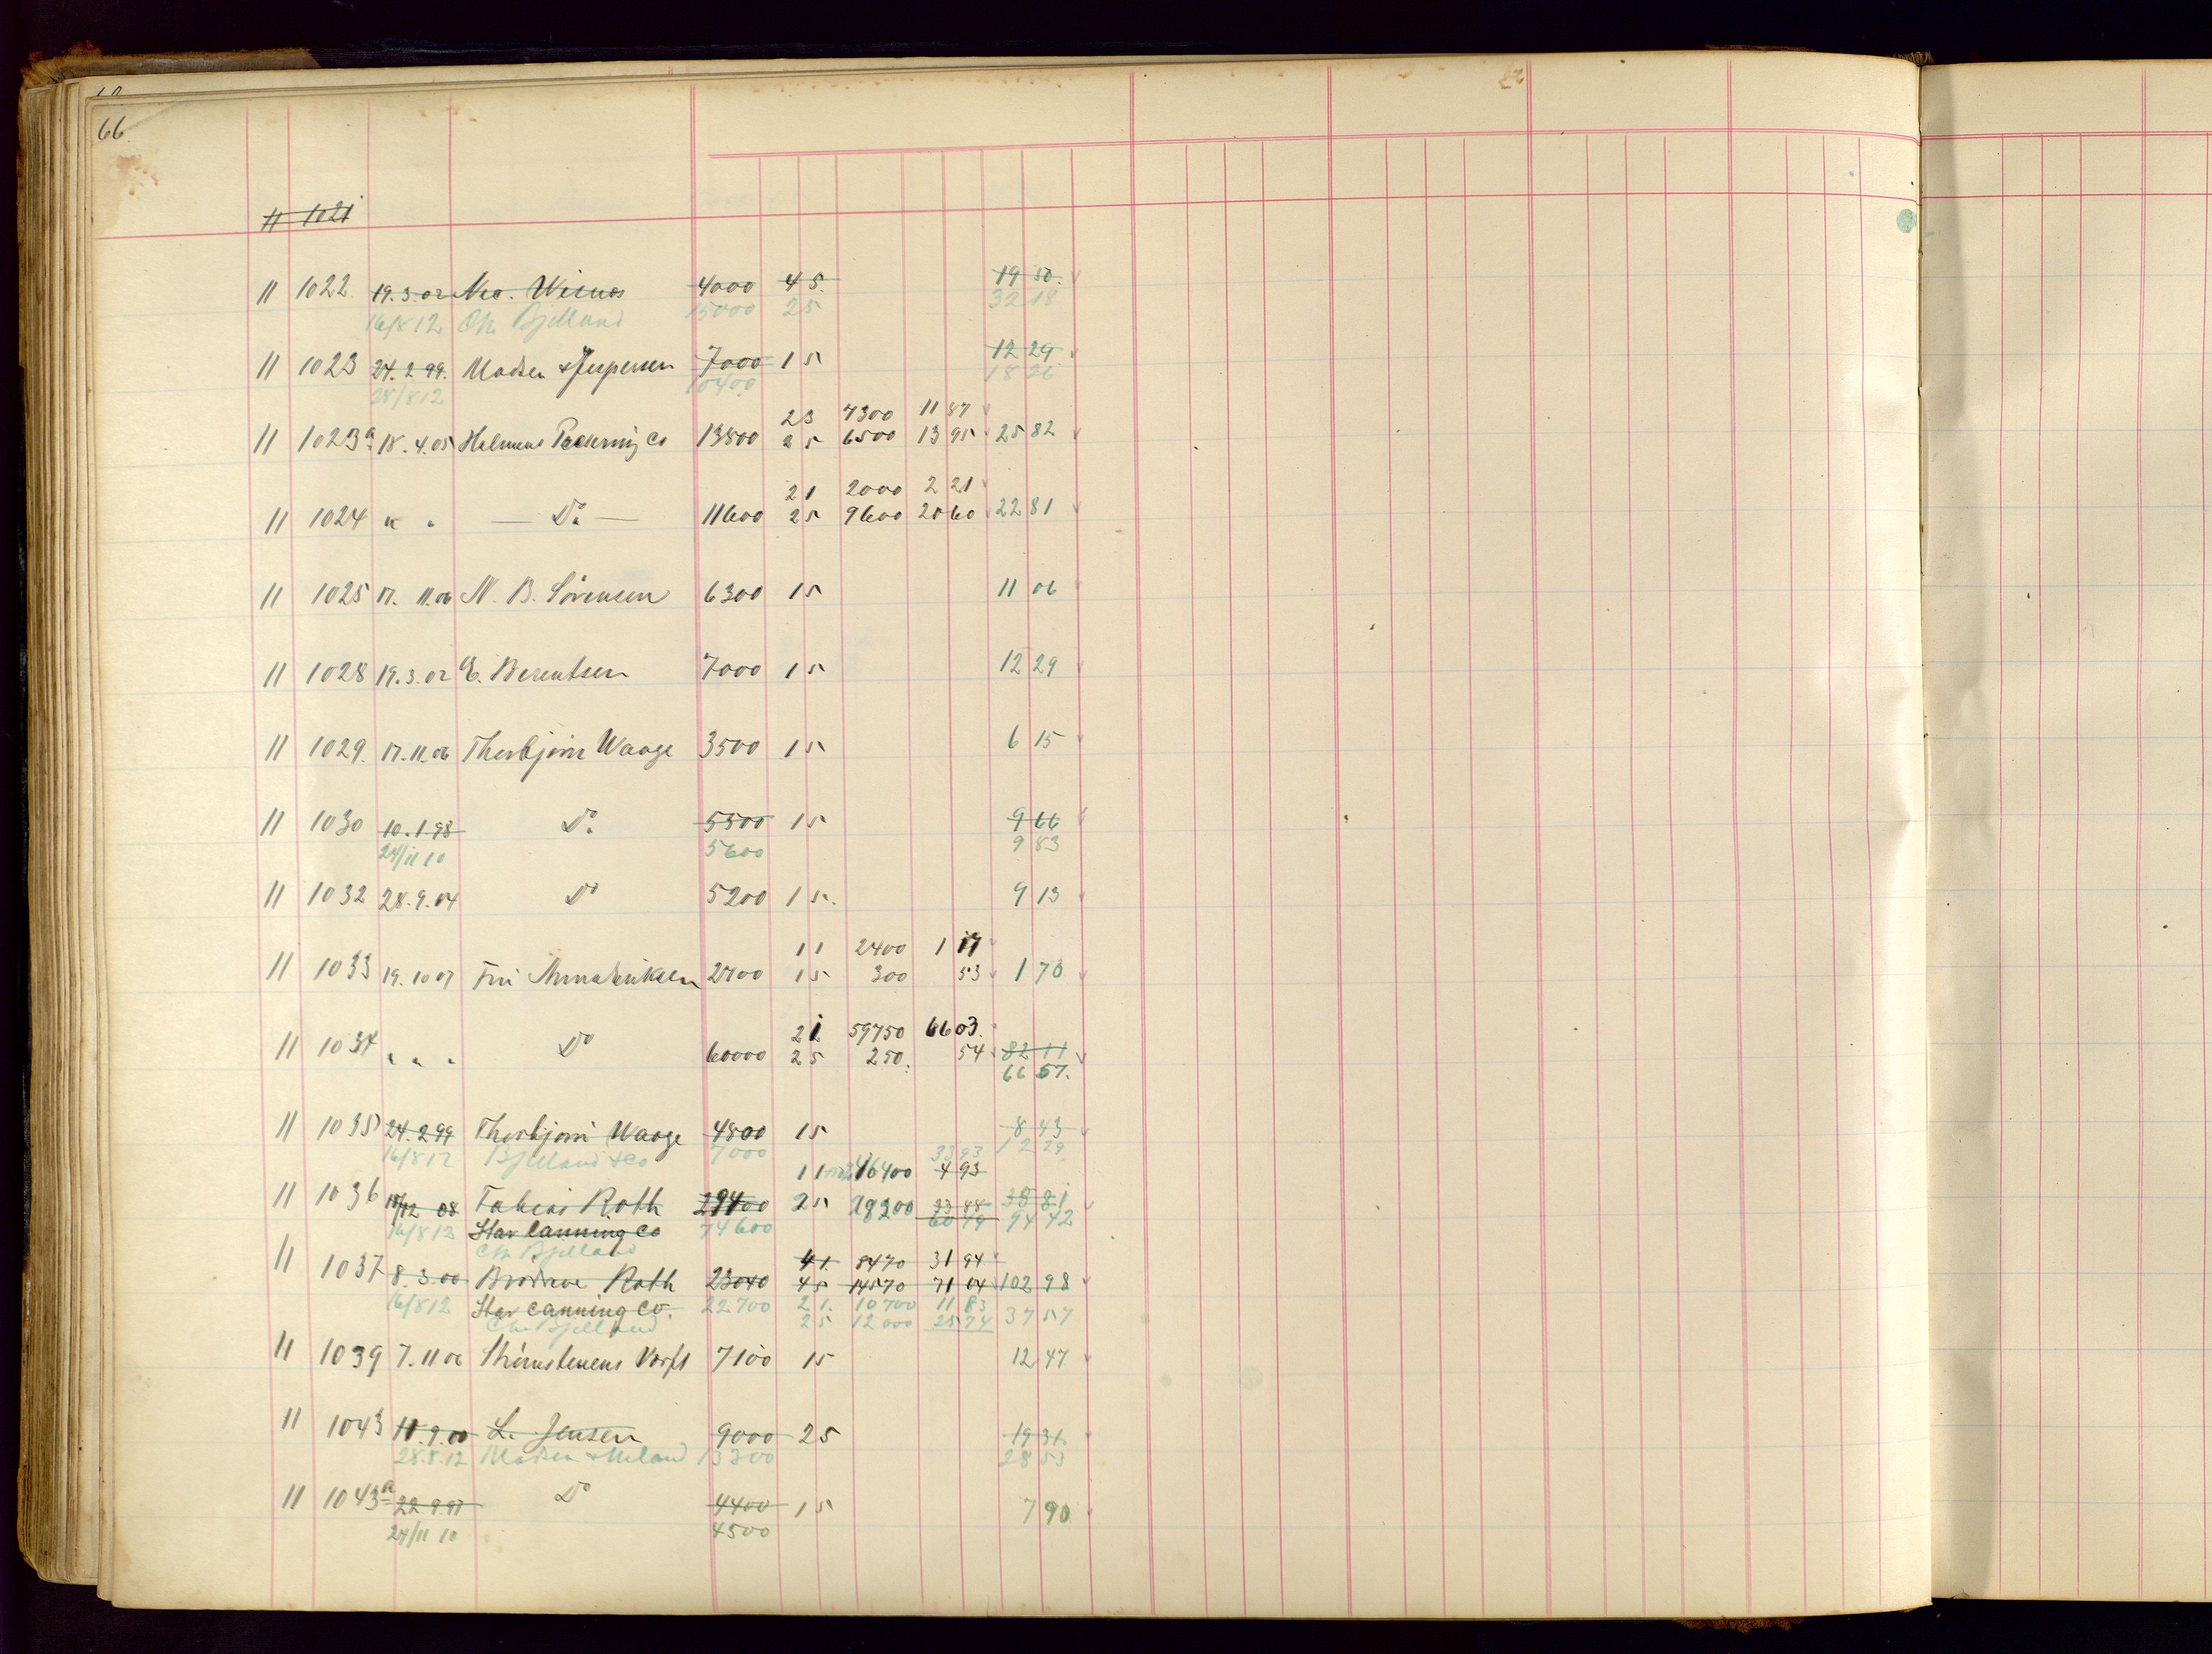 66.
11 1021
11 1022 19.3.02 Nic. Wisnes 4000 45. 19 50.
16/8 12 Chr. Bjelland 15000 25 32 18
11 1023 24.2.99. Madsen & Jespersen 7000 15 12 29
28/8 12 10400 18 26
23 7300 11 87
11 1023a 18.4.05 Holmens Packning Co 13800 25 6500 13 95 25 82
21 2000 2 21
11 1024 " " — Do — 11600 25 9600 20 60 22 81
11 1025 17. 11.06 N. B. Sörensen 6300 15 11 06
11 1028 19.3.02 E. Berentsen 7000 15 12 29
11 1029. 17.11.06 Thorbjörn Waage 3500 15 6 15
11 1030 10.1.98 Do 5500 15 9 66
24/11 10 5600 9 83
11 1032 28.9.04 Do 5200 15. 9 13
11 2400 1 17
11 1033 19.10 07 Fru Anna Eriksen 2700 15 300 53 1 70
21 59750 66 03.
11 1034 " " " Do 60000 25 250. 54 82 11
66 57.
11 1035 24.2.99 Thorbjörn Waage 4800 15 8 43
16/8 12 Bjelland & Co 7000 12 29
33 93
11 46400 4 93
11 1036 18/12 08 Tobias Roth 29400 25 28200 33 84 38 81
16/8 12 Star Canning Co 74600 60 49 94 42
Chr. Bjelland
41. 8470 31 94
11 1037 8.3.00 Brödrene Roth 23040 45 14570 71 04 102 98
16/8 12 Star Canning Co. 22700 21. 10700 11 83
Chr. Bjelland 25 12000 25 74 37 57
11 1039 7.11 06 Strömstenens Værft 7100 15 12 47
11 1043 11.9.00 L. Jensen 9000 25 19 31
28.8.12 Madsen & Meland 13300 28 53
11 1043a 22.9.97 Do 4400 15 7 90
24/11 10 4500